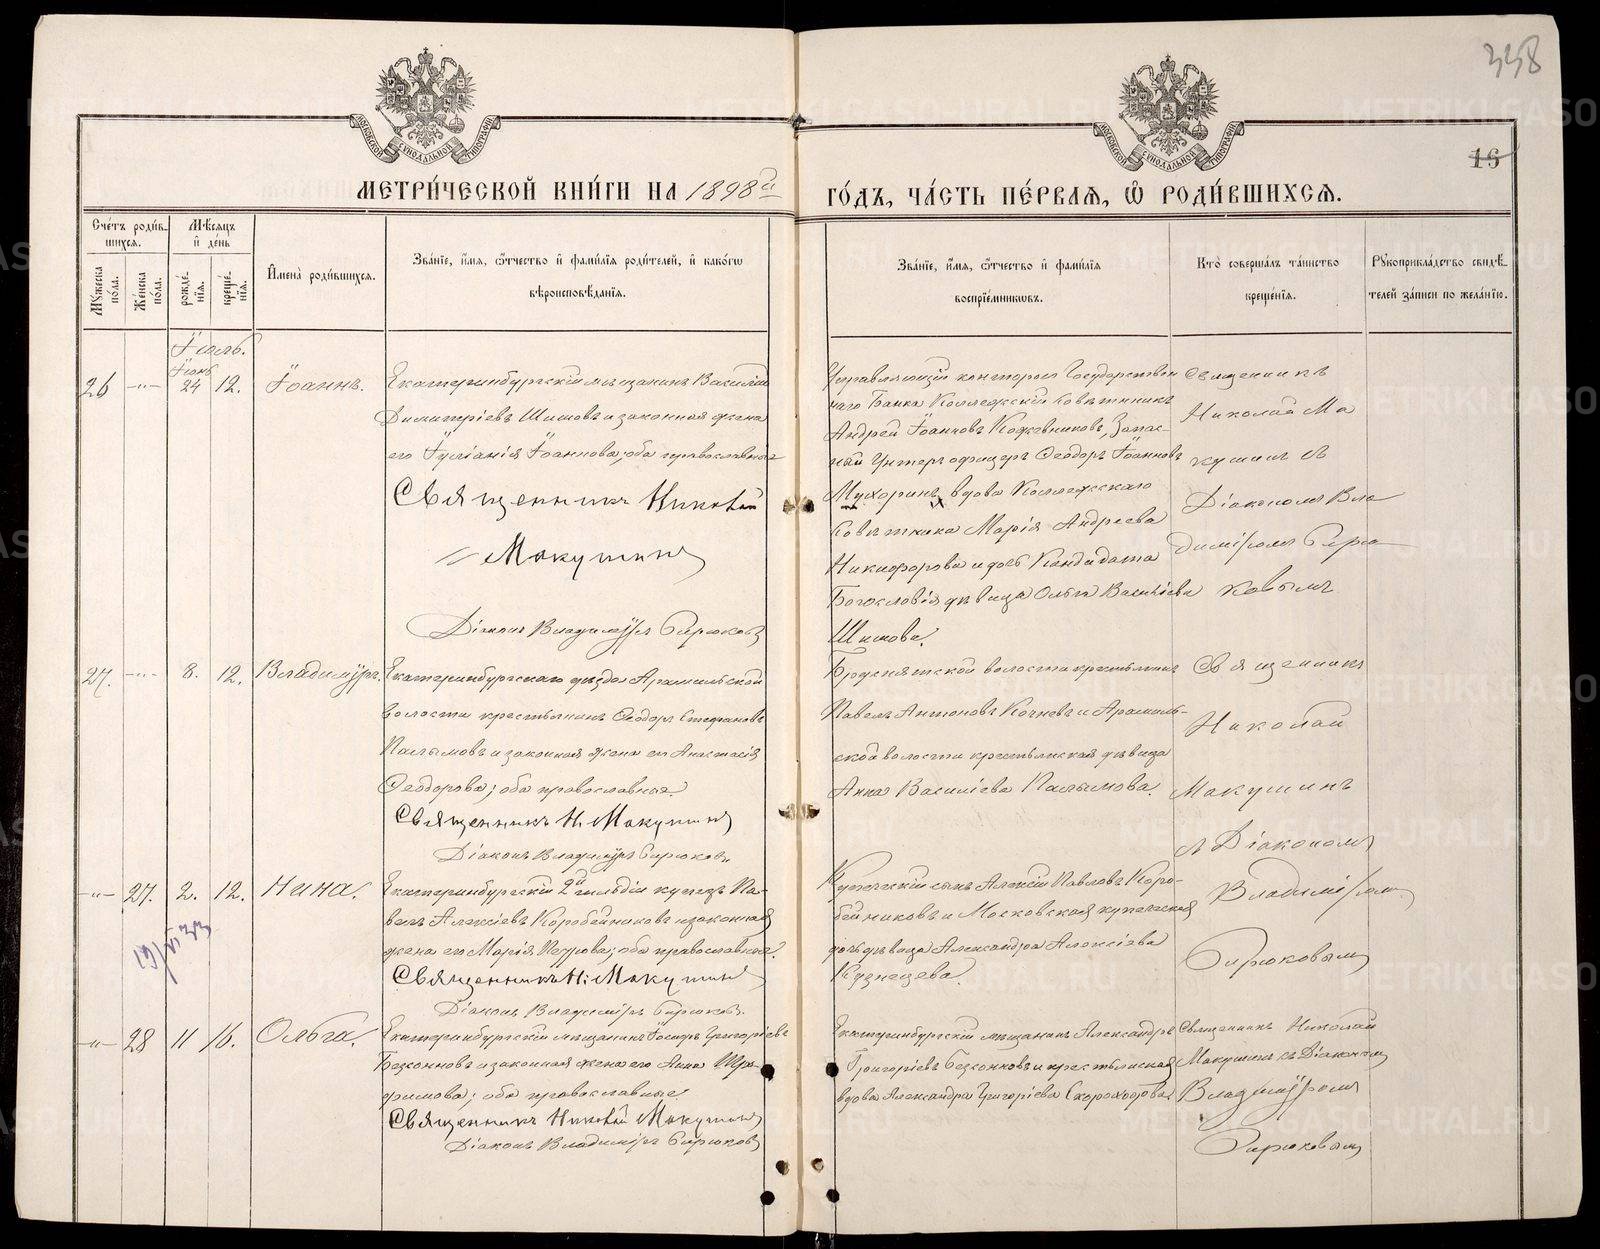 338
16
МОСКОВСКОЙ СѴНОДАЛЬНОЙ ТИПОГРАФІИ
МОСКОВСКОЙ СѴНОДАЛЬНОЙ ТИПОГРАФІИ
МЕТРИ́ЧЕСКОЙ КНИ́ГИ НА 1898й ГО́ДЪ, ЧА́СТЬ ПЕ́РВАЯ, Ѡ РОДИ́ВШИХСЯ.
Сче́тъ роди́вшихся.
Мѣ́сяцъ и де́нь
Му́жеска по́ла.
Же́нска по́ла.
рожде́нія.
креще́нія.
Имена̀ роди́вшихся.
Зва́ніе, и́мя, ѻ́тчество и фами́лія роди́телей, и како́гѡ
вѣроисповѣ́данія.
Зва́ніе, и́мя, ѻ́тчество и фами́лія
воспріе́мникѡвъ.
Кто̀ соверша́лъ та́инство
креще́нія.
Рукоприкла́дство свидѣ́телей за́писи по жела́нію.
Іюль.
Іюнь
26 -"- 24 12. Іоаннъ.
Екатеринбургскій мѣщанинъ Василій
Димитріевъ Шишовъ и законная жена
его Іуліанія Іоаннова; оба православные
Священникъ Николай
Макушинъ
Діаконъ Владиміръ Бирюковъ
Управляющій конторой Государствен
наго Банка Коллежскій Совѣтникъ
Андрей Іоанновъ Кожевниковъ, Запас-
ный Унтеръ офицеръ Ѳеодоръ Іоанновъ
Мухоринъ, вдова Коллежскаго
Совѣтника Марія Андреева
Никифорова и дочь Кандидата
Богословія дѣвица Ольга Васильева
Шишова.
Священникъ
Николай Ма
кушинъ съ
Діакономъ Вла
диміромъ Бирю
ковымъ
27. -"- 8. 12. Владиміръ.
Екатеринбургскаго уѣзда Арамильской
волости крестьянинъ Ѳеодоръ Стефановъ
Палымовъ и законная жена его Анастасія
Ѳеодорова; оба православные.
Священникъ Н. Макушинъ
Діаконъ Владиміръ Бирюковъ
волости крестьянинъ
Павелъ Антоновъ Кочневъ и Арамиль-
ской волости крестьянская дѣвица
Анна Василіева Палымова.
Священникъ
Николай
Макушинъ
съ Діакономъ
Владиміромъ
Бирюковымъ
-"- 27. 2. 12. Нина.
19/VI 33
Екатеринбургскій 2й гильдіи купецъ Па-
велъ Алексіевъ Коробейниковъ и законная
жена его Марія Петрова; оба православные.
Священникъ Н. Макушинъ
Діаконъ Владиміръ Бирюковъ.
Купеческій сынъ Алексій Павловъ Коро-
бейниковъ и Московская купеческая
дочь дѣвица Александра Алексіева
Кузнецева.
-"- 28 11 16. Ольга.
Екатеринбургскій мѣщанинъ Григоріевъ
Безсоновъ и законная жена его Анна
фимова; оба православные.
Священникъ Николай Макушинъ
Діаконъ Владиміръ Бирюковъ
Екатеринбургскій мѣщанинъ Александръ
Григоріевъ Безсоновъ и крестьянская
вдова Александра Григоріева Скороходова.
Священникъ Николай
Макушинъ съ Діакономъ
Владиміромъ
Бирюковымъ
METRIKI.GASO-URAL.RU